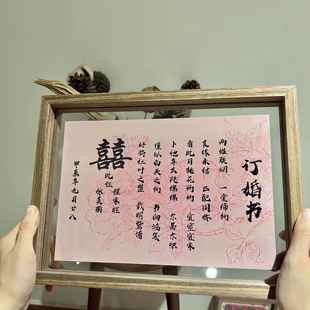 订婚书
两姓联姻 一堂缔约
良缘永结 匹配同称
看此日桃花灼灼 宜室宜家
卜他年瓜瓞绵绵 尔昌尔炽
谨以白头之约 书向鸿笺
好将红叶之盟 载明鸳谱
此证
囍
甲辰年九月廿八